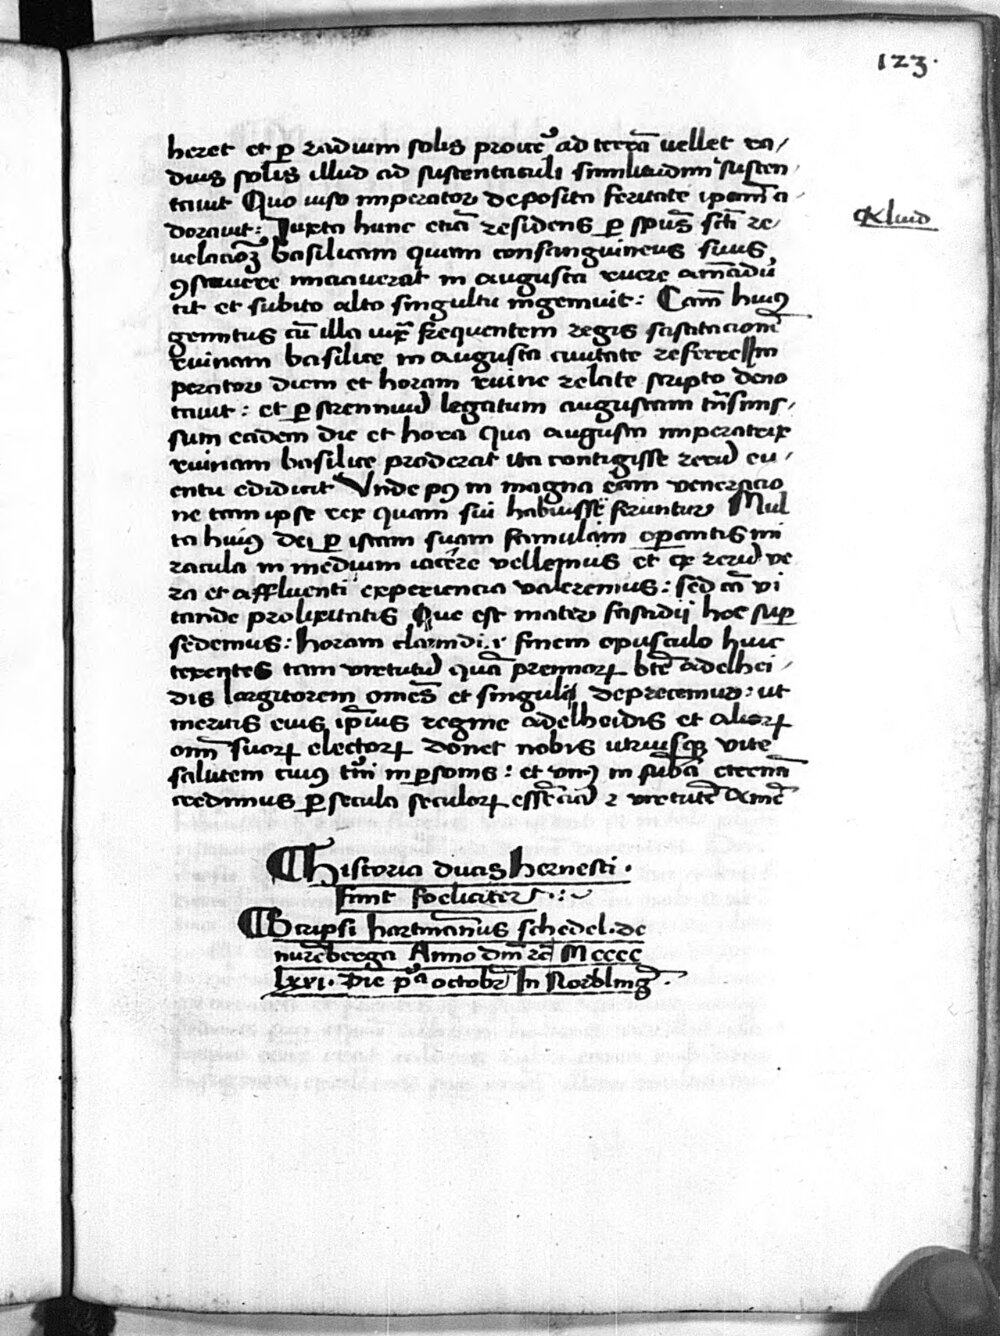 123.
heret et p radium solis proiice᷑ ad terrā uellet ra/
dius solis illud ad sustentaculi similitudinē susten
tauit Quo uiso imperator deposita feritate ipam a
dorauit: Iuxta hunc etiā residens p spūs scti re/
uelacioē basilicam quam consanguineus suus,
ꝯstruere in augusta ruere amadū
tit et subito alto singultu ingemuit: Cam huiꝰ
gemitus cū illa frequentem regis
ruinam basilice in augusta ciuitate referret Im
perator diem et horam ruine relate scripto deno
tauit: et p strennuū legatum augustam trāsmis/
sum eadem die et hora qua augusta imperatrix
ruinam basilice prodierat ita contigisse rerū eu/
entu edidicit Vnde pꝰ in magna eam veneracio
ne tam ipse rex quam sui habuisse feruntur Mul
ta huiꝰ dei p istam suam famulam operantis mi
racula in medium iacere vellemus et rerū ve
ra et affluenti experiencia valeremus: sed cā vi
tande prolixitatis Que est mater fastidij hoc sup
sedemus: horam claudēdi: ⁊ finem opusculo huic
texentes tam virtutū quā premiorꝝ bte adelhei/
dis largitorem omēs et singuli deprecemur: ut
meritis eius ipius regine adelheidis et aliorꝝ
omī suorꝝ electorꝝ donet nobis utriusqꝫ vite
salutem cuiꝰ in psonis: et in subā eternā
credimus p secula seculorꝝ et virtutē Amē
Historia ducis hernesti.
finit foeliciter
Scripsi hartmannus schedel. de
nurēberga Anno dm̄ Mcccc
lxxi. Die pª octobr In Nordling.